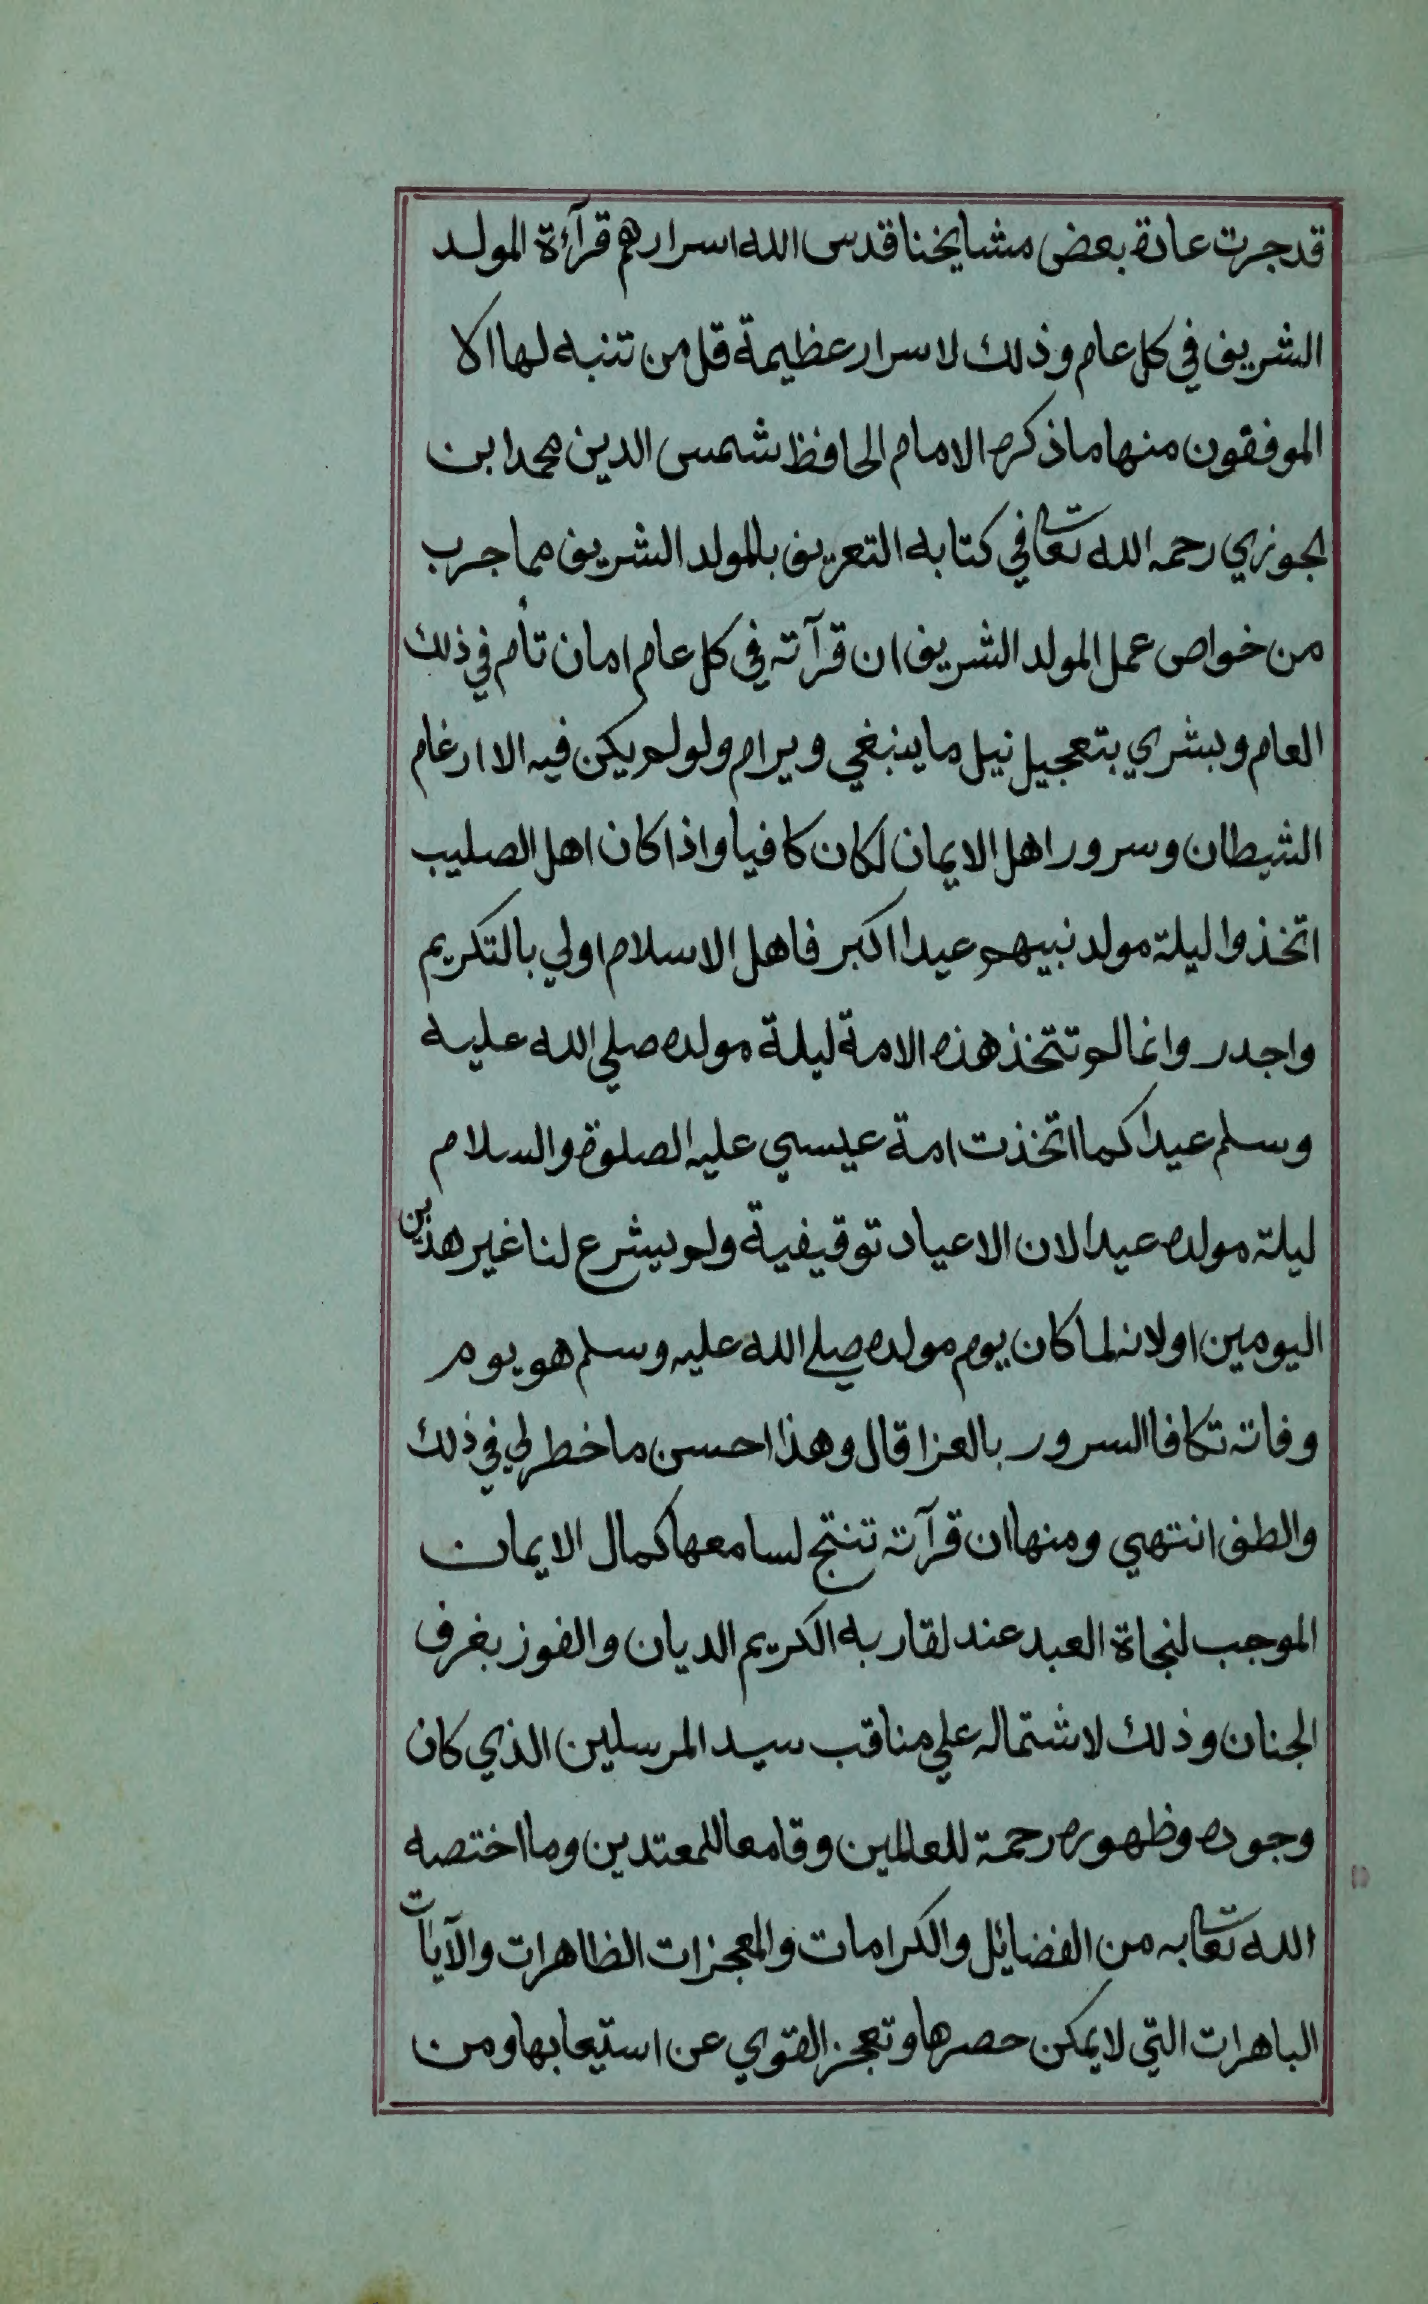 قد جرت عادة بعض مشايخنا قدس الله اسرارهم قرآءة المولد
الشريف في كل عام وذلك لاسرار عظيمة قل من تنبه لها الا
الموفقون منها ما ذكره الامام الحافظ شمس الدين محمد ابن
لجوزي رحمه الله تعالى في كتابه التعريف بالمولد الشريف مما جرب
من خواص عمل المولد الشريف ان قرآته في كل عام امان تأم في ذلك
العام وبشري بتعجيل نيل ما ينبغي ويرام ولو لم يكن فيه الا ارغام
الشيطان وسرور اهل الايمان لكان كافيا واذا كان اهل الصليب
اتخذوا ليلة مولد نبيهم عيدا اكبر فاهل الاسلام اولي بالتكريم
واجدر وانما لم تتخذ هذه الامة ليلة مولده صلي الله عليه
وسلم عيدا كما اتخذت امة عيسي عليه الصلوة والسلام
ليلة مولده عيدا لان الاعياد توقيفية ولم يشرع لنا غير هذين
اليومين او لانه لما كان يوم مولده صلي الله عليه وسلم هو يوم
وفاته تكافا السرور بالعزا قال وهذا احسن ما خطر لي في ذلك
والطف انتهي ومنها ان قرآته تنتج لسامعها كمال الايمان
الموجب لنجاة العبد عند لقا ربه الكريم الديان والفوز بغرف
الجنان وذلك لاشتماله علي مناقب سيد المرسلين الذي كان
وجوده وظهوره رحمة للعالمين وقامعا للمعتدين وما اختصه
الله تعالى به من الفضايل والكرامات والمعجزات الظاهرات والآيات
الباهرات التي لا يمكن حصرها وتعجز القوي عن استيعابها ومن